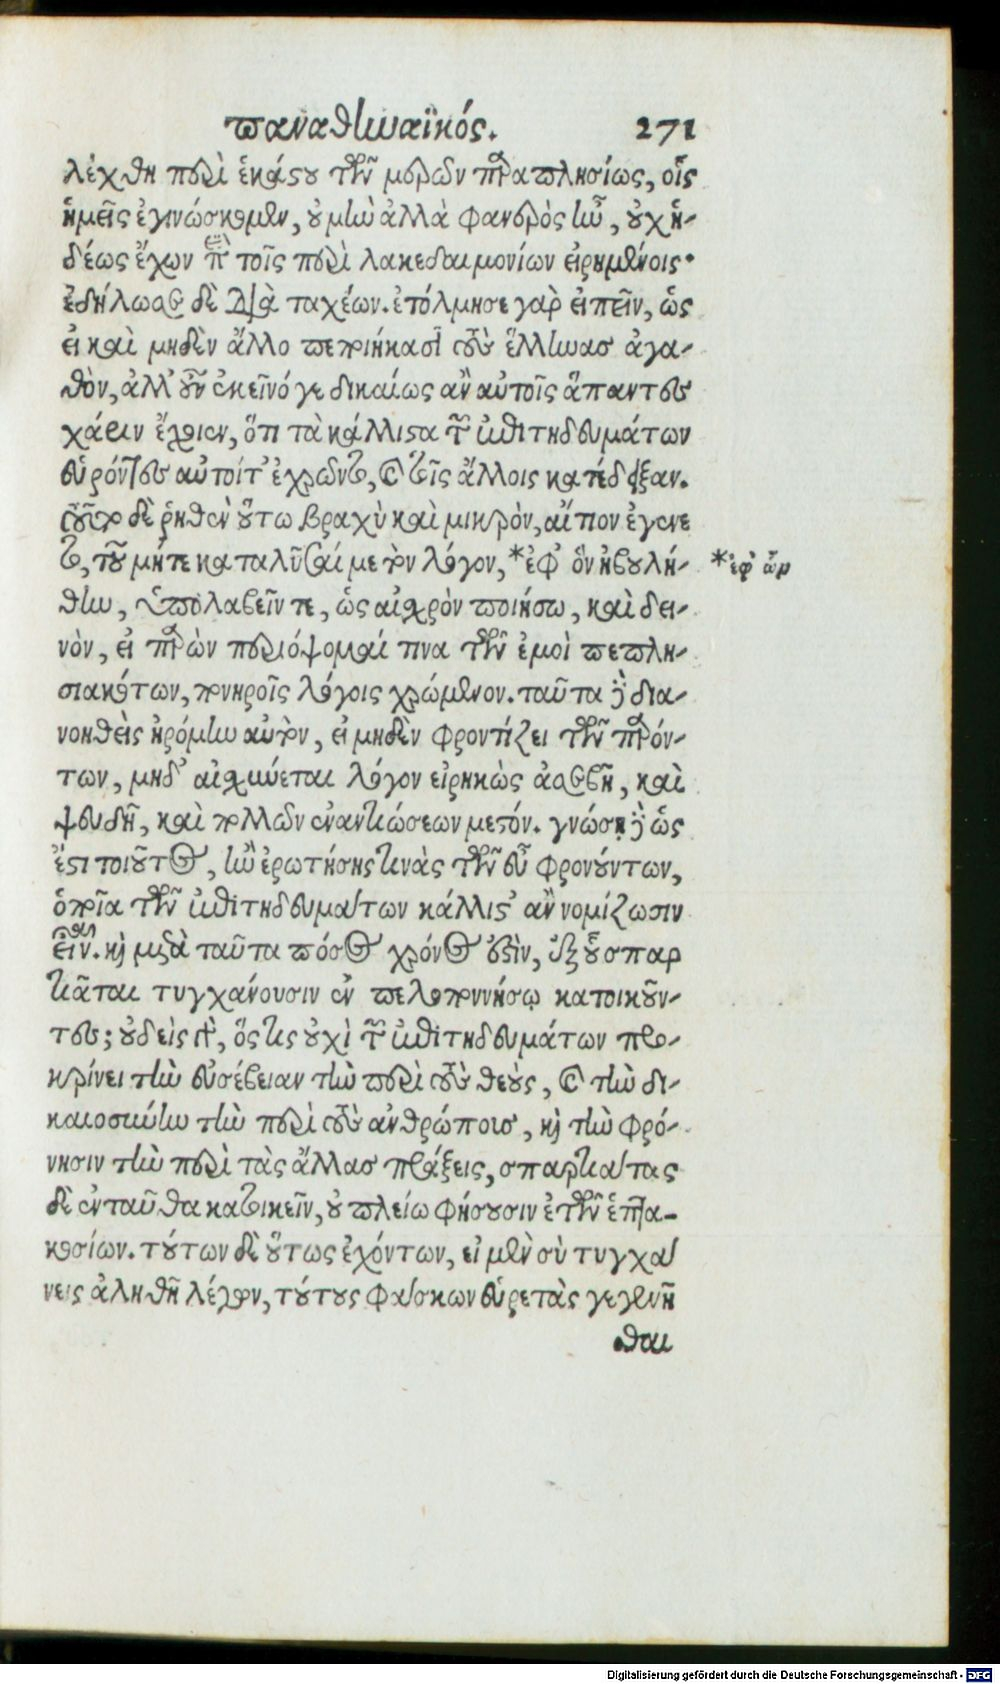 παναθηναϊκός. 271
λέχθη περὶ ἑκάστου τῶν μερῶν παραπλησίως, οἷς
ἡμεῖς ἐγινώσκομεν, οὐ μὴν ἀλλὰ φανερὸς ἦν, οὐχ ἡ-
δέως ἔχων ἐπὶ τοῖς περὶ λακεδαιμονίων εἰρημένοις·
ἐδήλωσε δὲ διὰ ταχέων. ἐτόλμησε γὰρ εἰπεῖν, ὡς
εἰ καὶ μηδὲν ἄλλο πεποιήκασι τοὺς ἕλληνας ἀγα-
θὸν, ἀλλ' οὖν ἐκεῖνό γε δικαίως ἂν αὐτοῖς ἅπαντες
χάριν ἔχοιεν, ὅτι τὰ κάλλιστα τῶν ἐπιτηδευμάτων
εὑρόντες αὐτοί τ' ἐχρῶντο, καὶ τοῖς ἄλλοις κατέδειξαν.
τοῦτο δὲ ῥηθὲν οὕτω βραχὺ καὶ μικρὸν, αἴτιον ἐγένε
το, τοῦ μήτε καταλῦσαί με τὸν λόγον, *ἐφ' ὃν ἠβουλή-
*ἐφ' ὧν
θην, ὑπολαβεῖν τε, ὡς αἰσχρὸν ποιήσω, καὶ δει-
νὸν, εἰ παρὼν περιόψομαί τινα τῶν ἐμοὶ πεπλη-
σιακότων, πονηροῖς λόγοις χρώμενον. ταῦτα δὲ δια-
νοηθεὶς ἠρόμην αὐτὸν, εἰ μηδὲν φροντίζει τῶν παρόν-
των, μηδ' αἰσχύνεται λόγον εἰρηκὼς ἀσεβῆ, καὶ
ψευδῆ, καὶ πολλῶν ἐναντιώσεων μεστόν. γνώσῃ δὲ ὡς
ἔστι τοιοῦτος, ἢν ἐρωτήσῃς τινὰς τῶν εὖ φρονούντων,
ὁποῖα τῶν ἐπιτηδευμάτων κάλλιστ' ἂν νομίζωσιν
εἶναι. καὶ μετὰ ταῦτα πόσος χρόνος ἐστὶν, ἐξ οὗ σπαρ
τιᾶται τυγχάνουσιν ἐν πελοποννήσῳ κατοικοῦν-
τες; οὐδεὶς γὰρ, ὅστις οὐχὶ τῶν ἐπιτηδευμάτων προ-
κρίνει τὴν εὐσέβειαν τὴν περὶ τοὺς θεοὺς, καὶ τὴν δι-
καιοσύνην τὴν περὶ τοὺς ἀνθρώπους, καὶ τὴν φρό-
νησιν τὴν περὶ τὰς ἄλλας πράξεις, σπαρτιάτας
δὲ ἐνταῦθα κατοικεῖν, οὐ πλείω φήσουσιν ἐτῶν ἑπτα-
κοσίων. τούτων δὲ οὕτως ἐχόντων, εἰ μὲν σὺ τυγχά
νεις ἀληθῆ λέγων, τούτους φάσκων εὑρετὰς γεγενῆ
σθαι
Digitalisierung gefördert durch die Deutsche Forschungsgemeinschaft - DFG